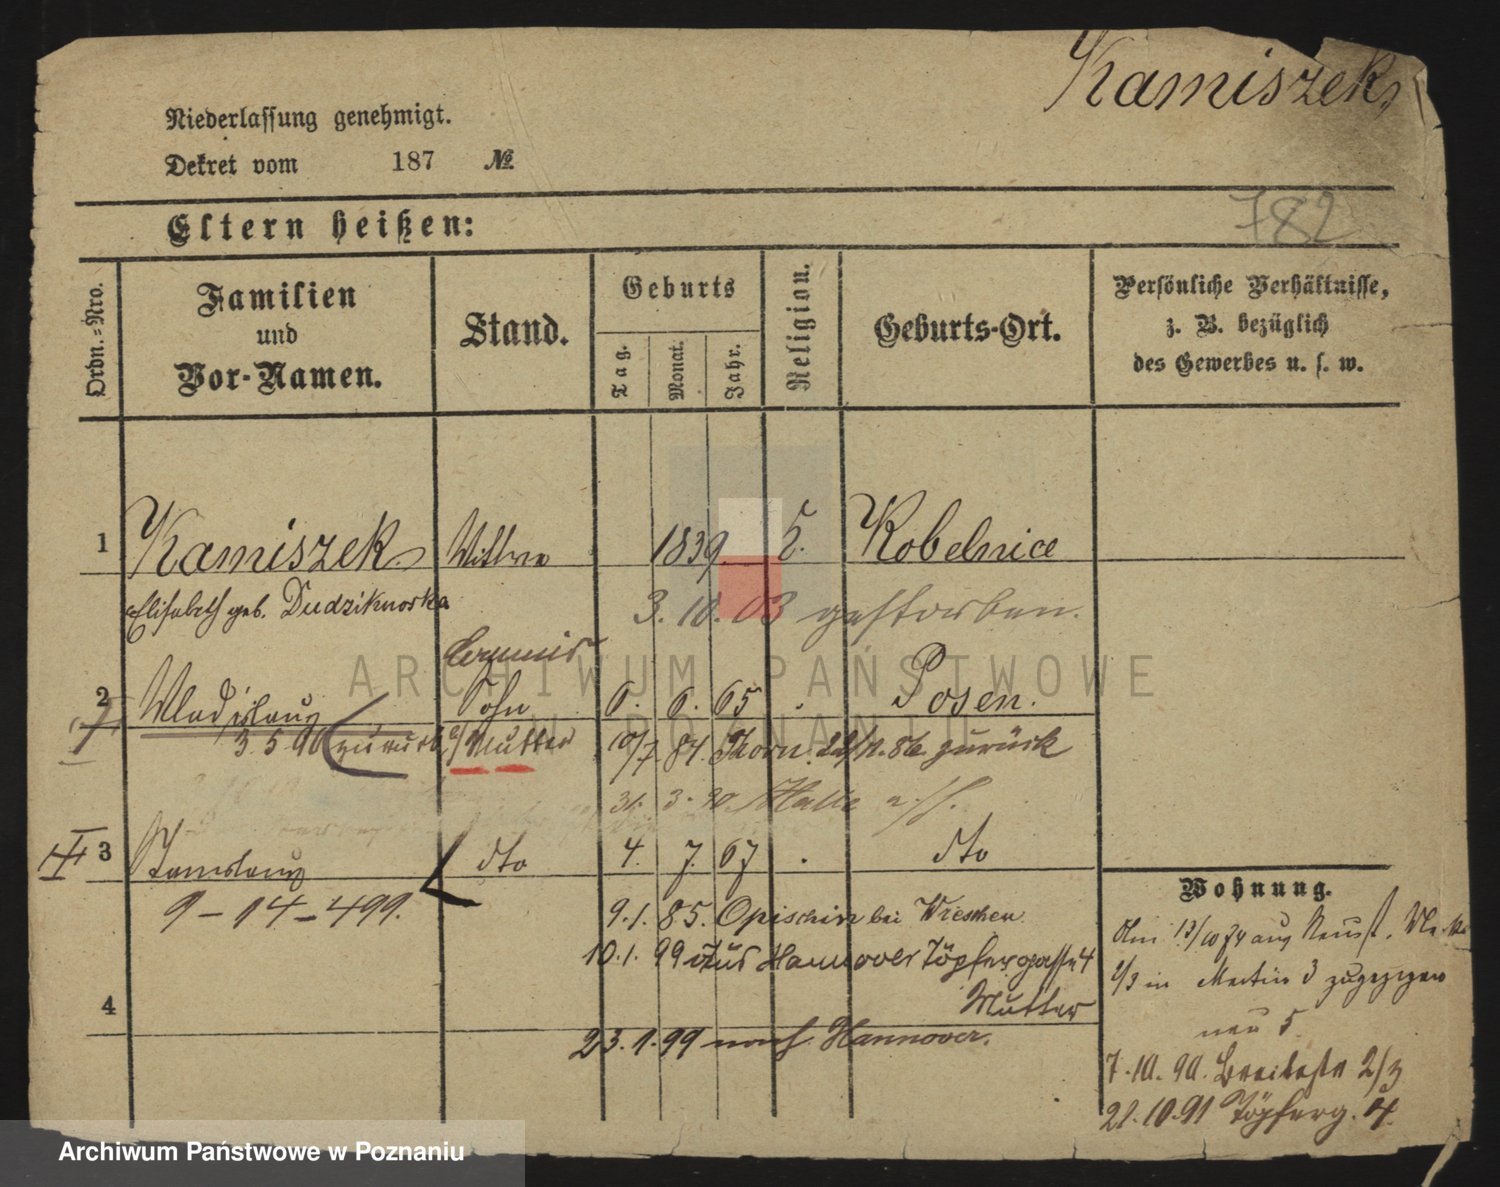 Kamiszek,
Niederlassung genehmigt.
Dekret vom 187 №
782
Eltern heißen:
Ordn.=Nro.
Familien und Vor-Namen.
Stand.
Geburts
Tag.
Monat.
Jahr.
Religion.
Geburts-Ort.
Persönliche Verhältnisse,
z. B. bezüglich
des Gewerbes u. s. w.
1 Kamiszek Wittwe 1839 Kobelnice
Elisabeth geb. Dudzikowska 3. 10. 03 gestorben.
Commis
2 Wladislaus Sohn 6. 6. 65 Posen.
3. 5. 90 zurück c/Mutter 10/7 84. Thorn. 86 zurück
31. 3. 90 Halle a./S.
3 Stanislaus dto 4. 7. 67 . dto
9-14-499.
9. 1. 85. Opischin bei Wreschen
10. 1. 99 aus Hannover Töpfergasse 4
Mutter
4
23. 1. 99 nach Hannover.
Wohnung.
Am 13/10 74 aus Neust.
2/3 in Martin 3 zugezogen
neu 5.
7. 10. 90. Breitestr 2/3
21. 10. 91 Töpferg. 4.
ARCHIWUM PAŃSTWOWE
W POZNANIU
Archiwum Państwowe w Poznaniu